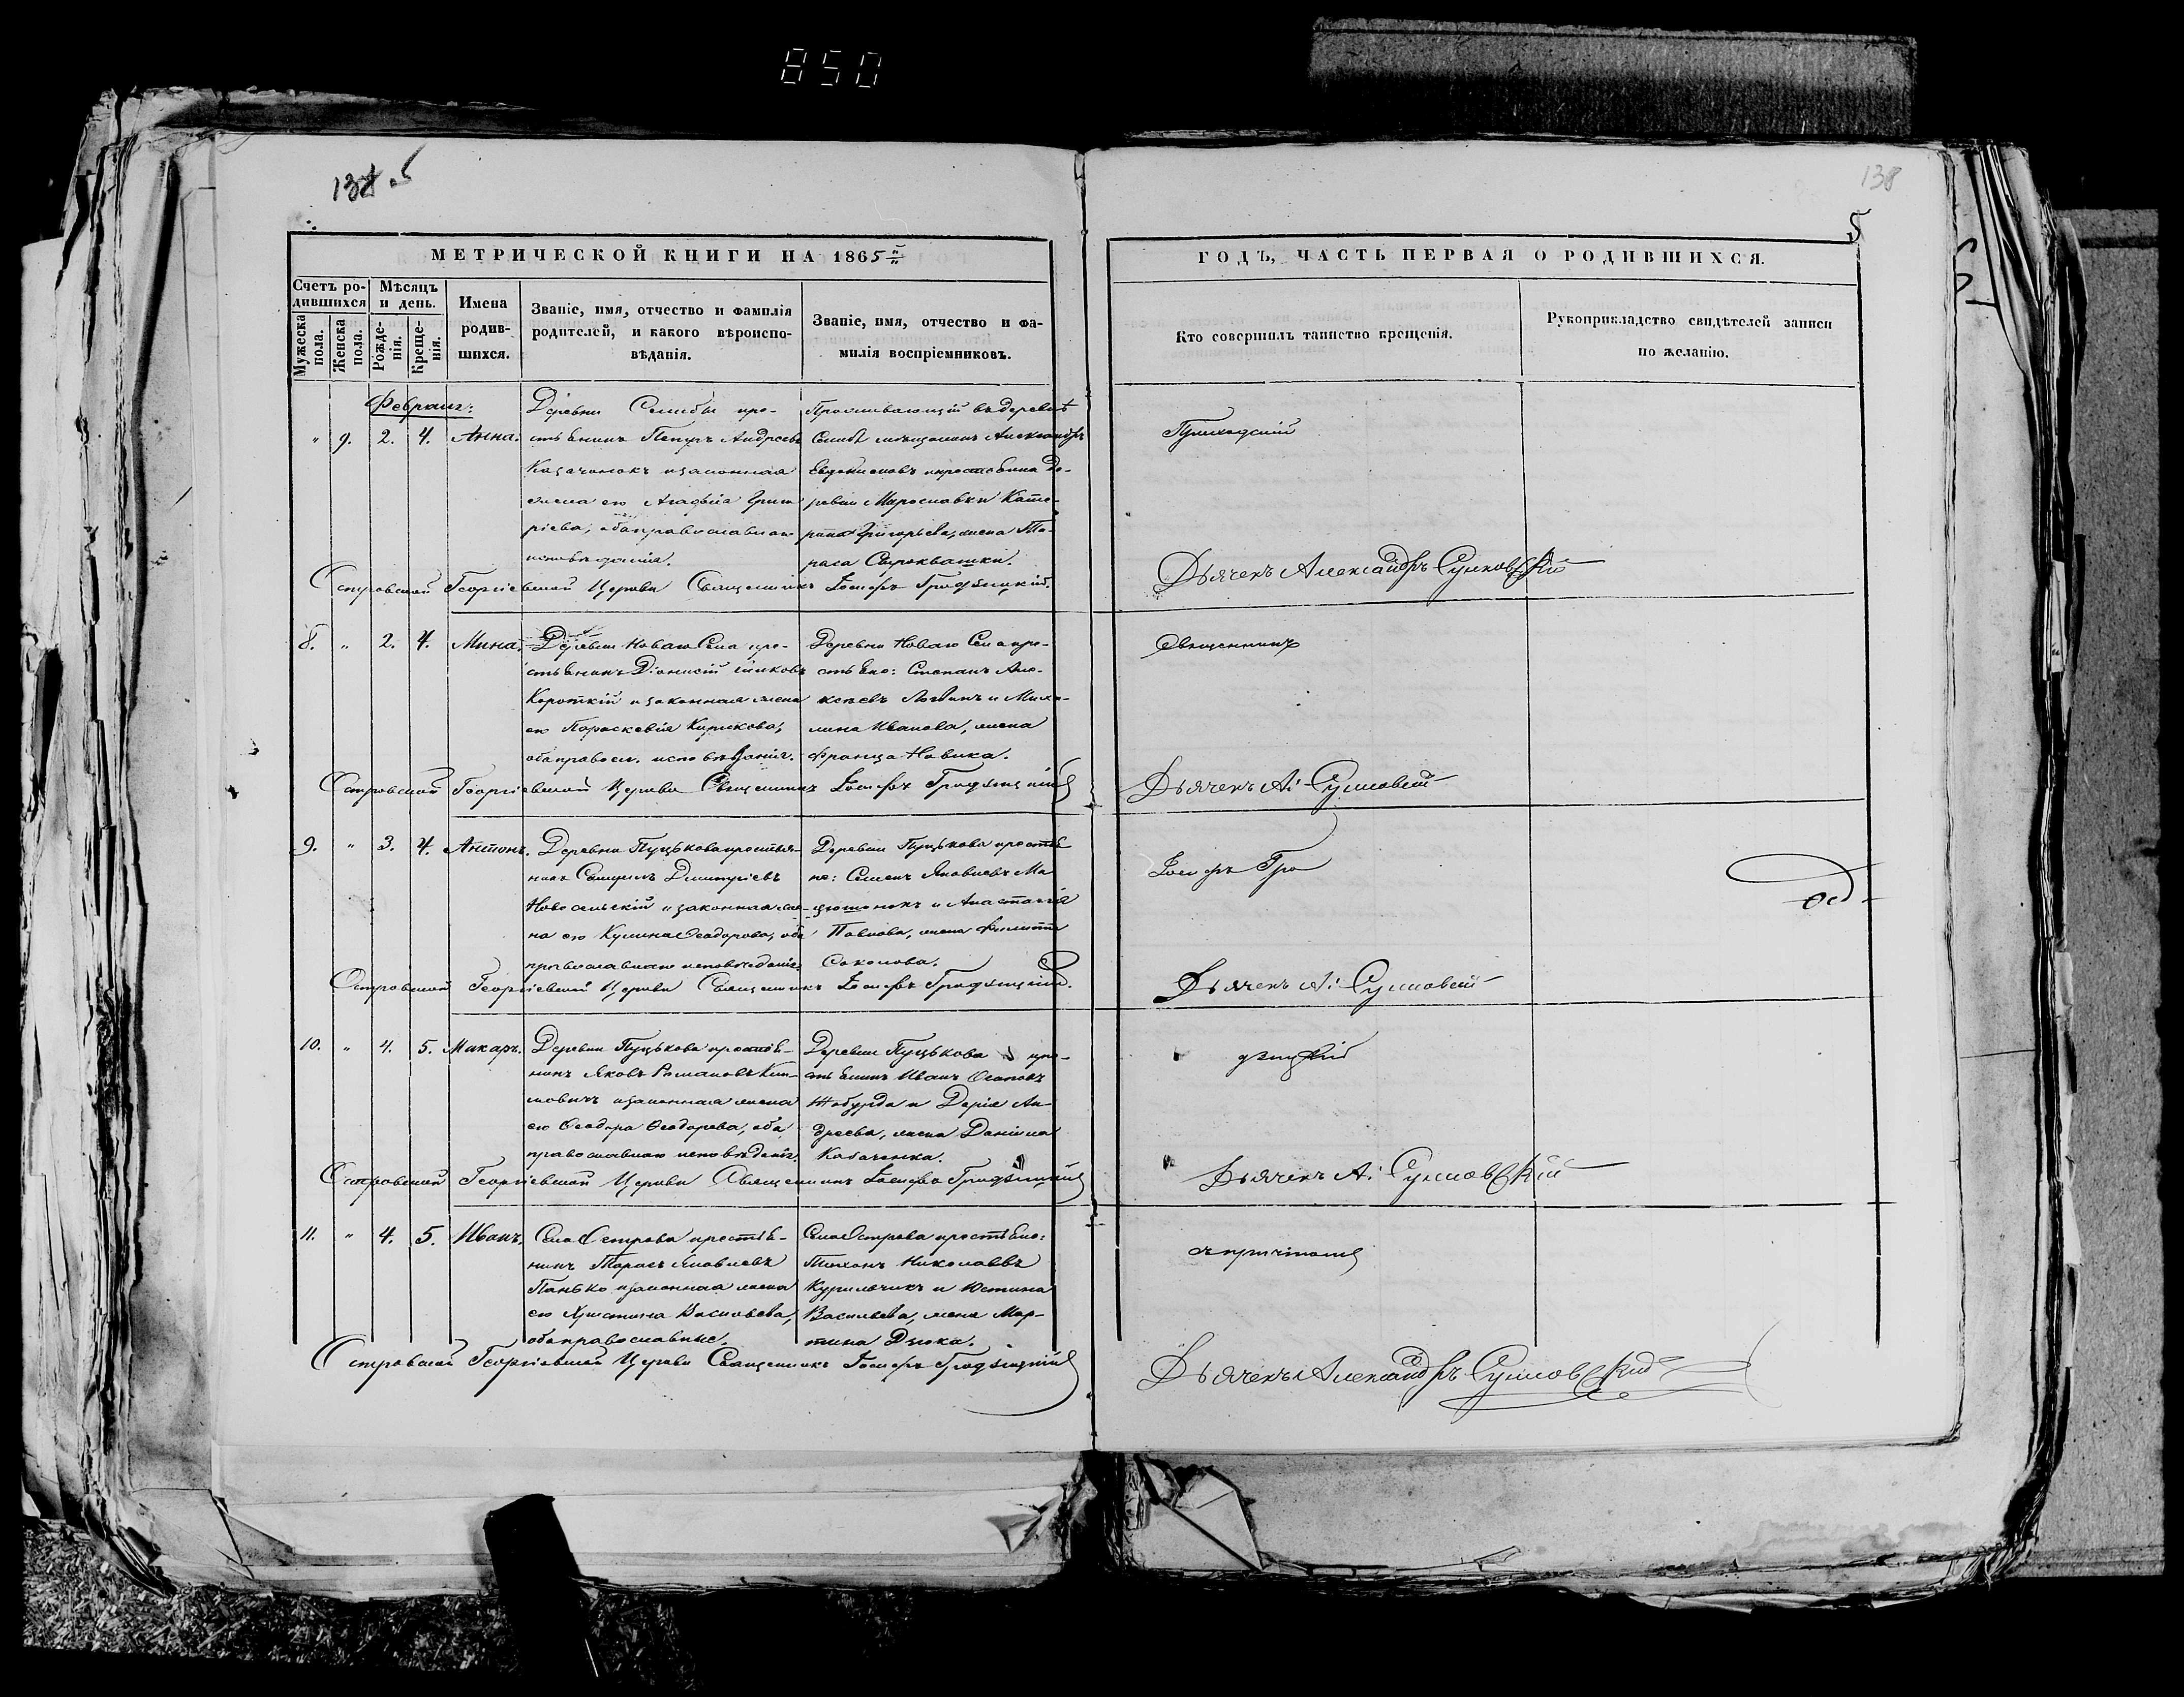 850
138
5
138
5
МЕТРИЧЕСКОЙ КНИГИ НА 1865й
ГОДЪ, ЧАСТЬ ПЕРВАЯ О РОДИВШИХСЯ.
Счетъ родившихся
Мужеска пола.
Женска пола.
Мѣсяцъ и день.
Рожденія.
Крещенія.
Имена родившихся.
Званіе, имя, отчество и фамилія
родителей, и какого вѣроиспо-
вѣданія.
Званіе, имя, отчество и фа-
милія воспріемниковъ.
Кто совершилъ таинство крещенія.
Рукоприкладство свидѣтелей записи
по желанію.
Февраль:
" 9. 2. 4. Анна.
Деревни Селибы кре-
стьянинъ Петръ Андреевъ
Казаченокъ и законная
жена его Агафія Григо
ріева, оба православнаго
исповѣданія.
Проживающій въ деревнѣ
Селибѣ мѣщанинъ Александръ
Евдокимовъ и крестьянка де-
ревни Мирославки Кате-
рина Григорьева, жена Та-
раса Сыроквашки.
Приходскій
Островской Георгіевской Церкви Священникъ Іосифъ Гродзицкій.
Дьячекъ Александръ Сулковскій
8. " 2. 4. Мина.
Деревни Новаго Села кре-
стьянинъ Діонисій
Короткій и законная жена
его Параскевія Кирикова,
оба правосл. исповѣданія.
Деревни Новаго Села кре-
стьяне: Степанъ Але-
ксѣевъ и Миха-
лина Иванова, жена
Франца Новика.
Священникъ
Островской Георгіевской Церкви Священникъ Іосифъ Гродзицкій
Дьячекъ А: Сулковскій
9. " 3. 4. Антонъ.
Деревни Пуцькова крестья-
нинъ Самуилъ Дмитріевъ
Новосельскій и законная же-
на его Кулина Ѳеодорова, оба
православнаго исповѣданія.
Деревни Пуцькова крестья
не: Семенъ Яковлевъ
и Анастасія
Павлова, жена Филиппа
Соколова.
Іосифъ Гро
Островской Георгіевской Церкви Священникъ Іосифъ Гродзицкій.
Дьячекъ А: Сулковскій
10. " 4. 5. Макаръ.
Деревни Пуцькова крестья-
нинъ Яковъ Романовъ Кли-
мовичъ и законная жена
его Ѳеодора Ѳеодорова, оба
православнаго исповѣданія.
Деревни Пуцькова кре-
стьянинъ Иванъ Осиповъ
Жабурда и Дарія Ан-
дреева, жена Даніила
Казаченка.
дзицкій
Островской Георгіевской Церкви Священникъ Іосифъ Гродзицкій
Дьячекъ А: Сулковскій
11. " 4. 5. Иванъ.
Села Острова крестья-
нинъ Тарасъ Яковлевъ
Панько и законная жена
его Христина Васильева,
оба православные.
Села Острова крестьяне:
Тихонъ Николаевъ
Курильчикъ и Юстина
Васильева, жена Мар-
тина Дзюка.
съ причтомъ
Островской Георгіевской Церкви Священникъ Іосифъ Гродзицкій
Дьячекъ Александръ Сулковскій